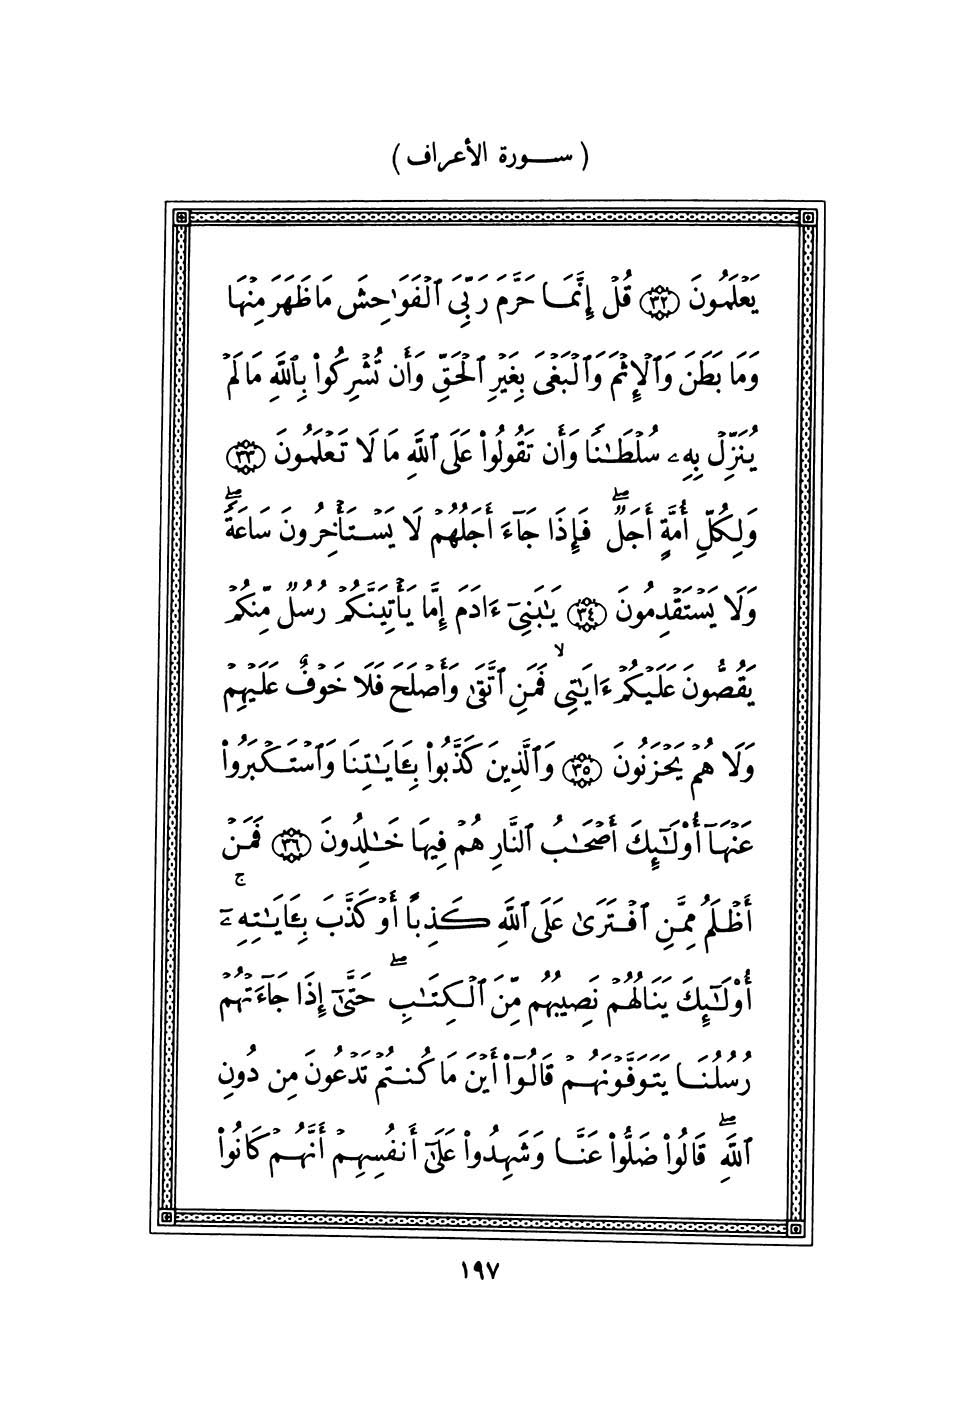 ( ســورة الأعراف )
يَعْلَمُونَ ﴿٣٢﴾ قُلْ إِنَّمَا حَرَّمَ رَبِّىَ ٱلْفَوَٰحِشَ مَا ظَهَرَ مِنْهَا
وَمَا بَطَنَ وَٱلْإِثْمَ وَٱلْبَغْىَ بِغَيْرِ ٱلْحَقِّ وَأَن تُشْرِكُوا۟ بِٱللَّهِ مَا لَمْ
يُنَزِّلْ بِهِۦ سُلْطَـٰنًا وَأَن تَقُولُوا۟ عَلَى ٱللَّهِ مَا لَا تَعْلَمُونَ ﴿٣٣﴾
وَلِكُلِّ أُمَّةٍ أَجَلٌۖ فَإِذَا جَآءَ أَجَلُهُمْ لَا يَسْتَأْخِرُونَ سَاعَةًۖ
وَلَا يَسْتَقْدِمُونَ ﴿٣٤﴾ يَـٰبَنِىٓ ءَادَمَ إِمَّا يَأْتِيَنَّكُمْ رُسُلٌ مِّنكُمْ
يَقُصُّونَ عَلَيْكُمْ ءَايَـٰتِىۙ فَمَنِ ٱتَّقَىٰ وَأَصْلَحَ فَلَا خَوْفٌ عَلَيْهِمْ
وَلَا هُمْ يَحْزَنُونَ ﴿٣٥﴾ وَٱلَّذِينَ كَذَّبُوا۟ بِـَٔايَـٰتِنَا وَٱسْتَكْبَرُوا۟
عَنْهَآ أُو۟لَـٰٓئِكَ أَصْحَـٰبُ ٱلنَّارِ هُمْ فِيهَا خَـٰلِدُونَ ﴿٣٦﴾ فَمَنْ
أَظْلَمُ مِمَّنِ ٱفْتَرَىٰ عَلَى ٱللَّهِ كَذِبًا أَوْ كَذَّبَ بِـَٔايَـٰتِهِۦٓۚ
أُو۟لَـٰٓئِكَ يَنَالُهُمْ نَصِيبُهُم مِّنَ ٱلْكِتَـٰبِۖ حَتَّىٰٓ إِذَا جَآءَتْهُمْ
رُسُلُنَا يَتَوَفَّوْنَهُمْ قَالُوٓا۟ أَيْنَ مَا كُنتُمْ تَدْعُونَ مِن دُونِ
ٱللَّهِۖ قَالُوا۟ ضَلُّوا۟ عَنَّا وَشَهِدُوا۟ عَلَىٰٓ أَنفُسِهِمْ أَنَّهُمْ كَانُوا۟
١٩٧